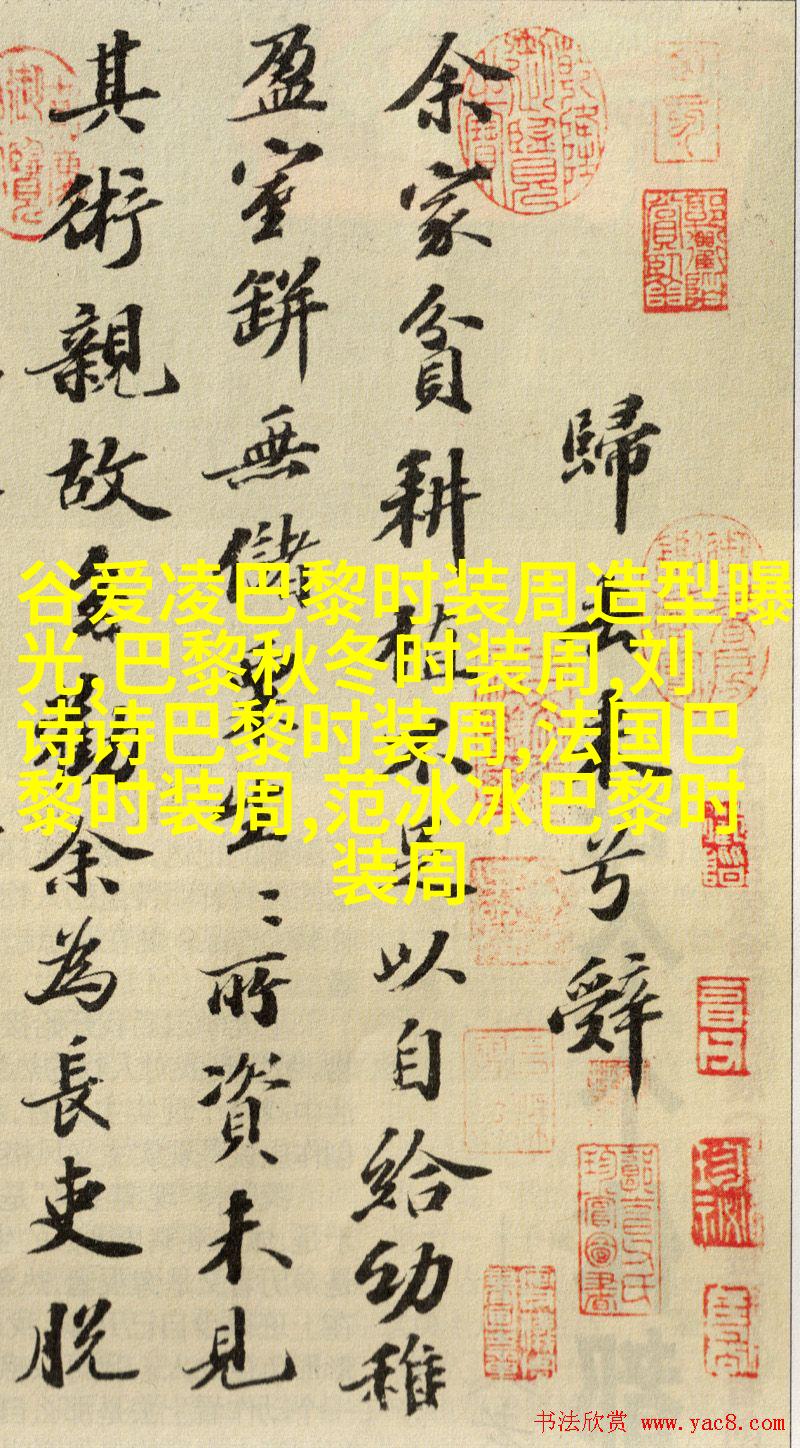 歸去來兮辭
余家貧耕植不足以自給幼稚
盈室缾無儲粟生〻所資未見
其術親故多勸余為長吏脫
谷爱凌巴黎时装周造型曝
光,巴黎秋冬时装周,刘
诗诗巴黎时装周,法国巴
黎时装周,范冰冰巴黎时
装周
书法欣赏 www.yac8.com